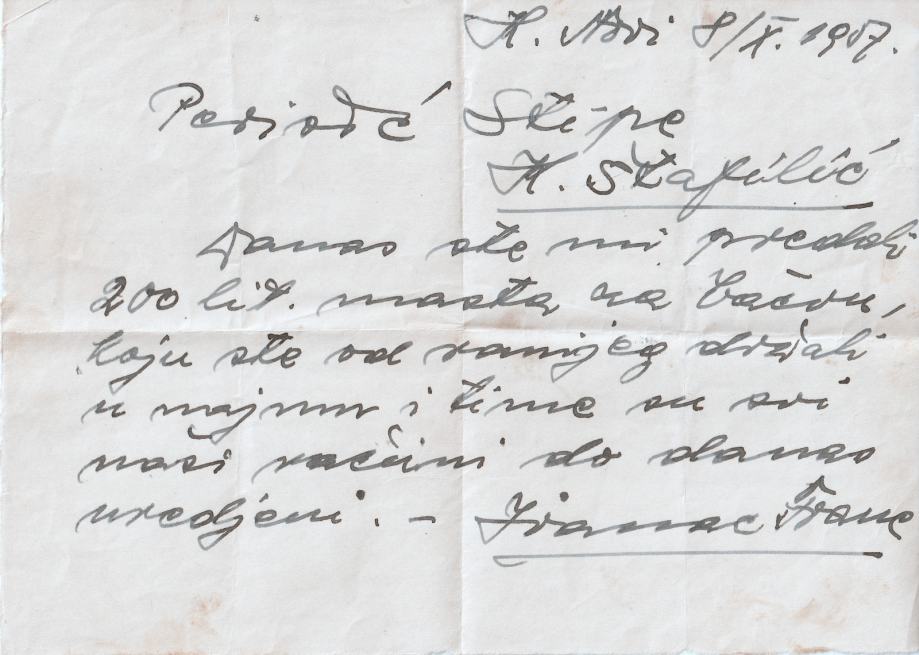 K. Novi 8/X. 1957.
Perišić Stipe
K. Štafilić
Danas ste mi predali
200 lit. masta za bačvu,
koju ste od ranijeg držali
u najmu i time su svi
naši računi do danas
uredjeni. —
Frane